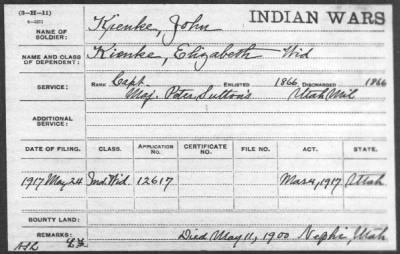 (3-H-11)
INDIAN WARS
NAME OF SOLDIER: Kienke, John
NAME AND CLASS OF DEPENDENT: Kienke, Elizabeth Wid
SERVICE: RANK Capt. ENLISTED 1866 DISCHARGED 1866
Maj. Peter Sutton's Utah Mil
ADDITIONAL SERVICE:
DATE OF FILING. CLASS. APPLICATION No. CERTIFICATE NO. FILE NO. ACT. STATE.
1917 May 24 Ind. Wid. 12617 Mar 4, 1917 Utah
BOUNTY LAND:
REMARKS: Died May 11, 1900 Nephi, Utah